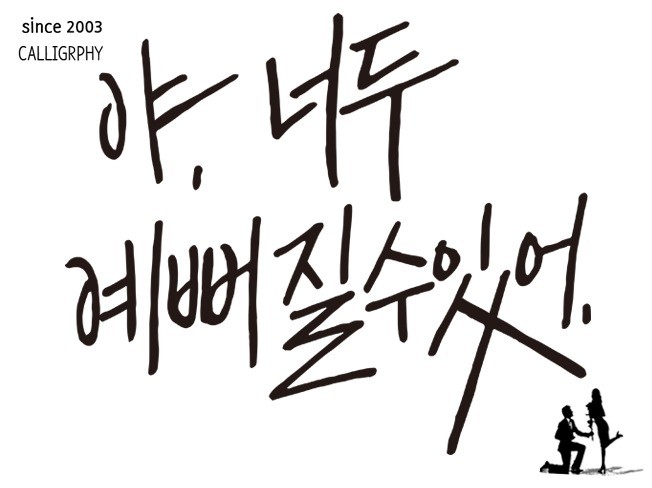 since 2003
CALLIGRPHY
야, 너두
예뻐질수있어.